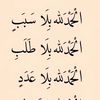 الْحَمْدُ لِلّٰهِ بِلَا سَبَبٍ
الْحَمْدُ لِلّٰهِ بِلَا طَلَبٍ
الْحَمْدُ لِلّٰهِ بِلَا عَدَدٍ